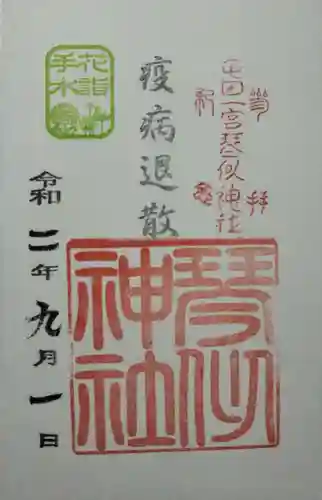 奉拝
一宮琴似神社
疫病退散
花詣
手水
琴似
神社
令和二年九月一日